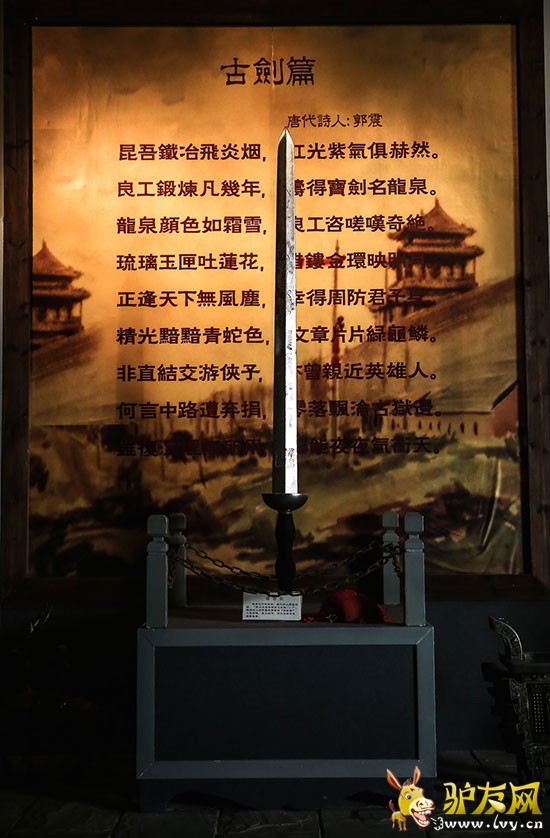 古劍篇
唐代詩人:郭震
昆吾鐵冶飛炎烟, 紅光紫氣俱赫然。
良工鍛煉凡幾年, 鑄得寶劍名龍泉。
龍泉顔色如霜雪, 良工咨嗟嘆奇絶。
琉璃玉匣吐蓮花, 錯鏤金環映
正逢天下無風塵, 幸得周防君子
精光黯黯青蛇色, 文章片片緑龜鱗。
非直結交游俠子, 亦曾親近英雄人。
何言中路遭弃捐, 零落飄淪古獄邊。
雖復 能夜夜氣衝天。
驴友网
www.lvy.cn